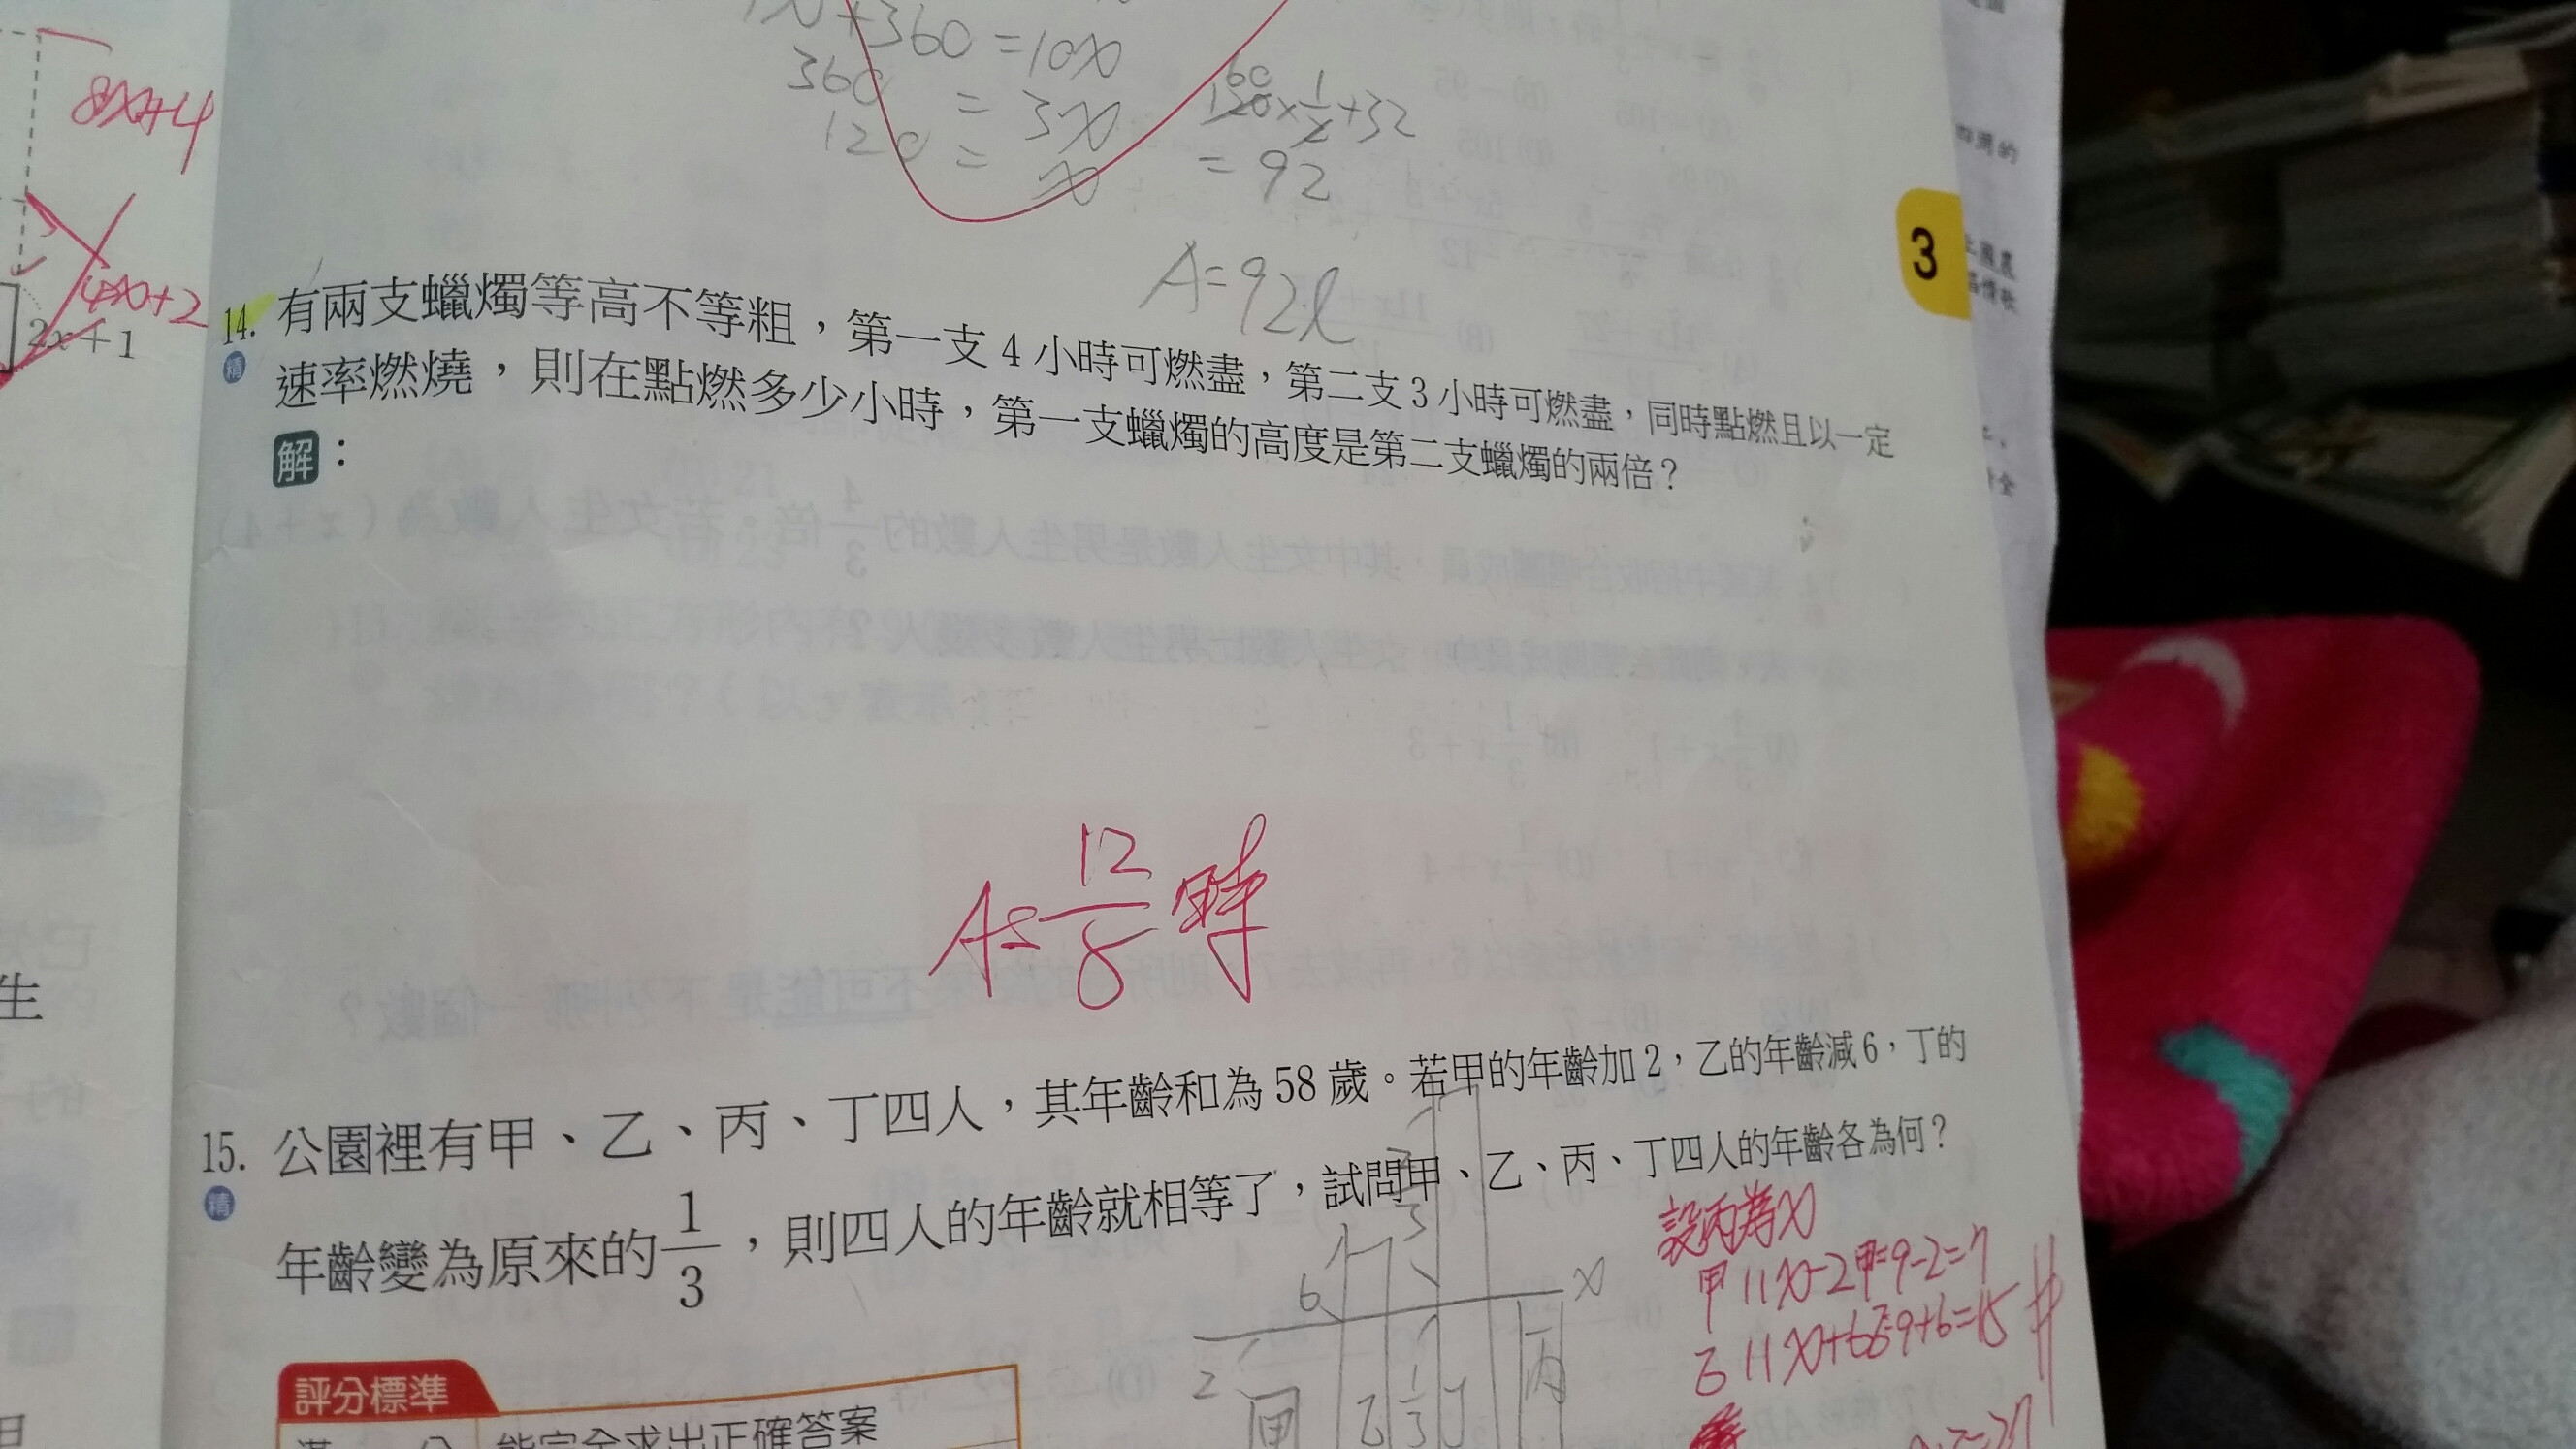 +360=10x
8x+4
360 = 3x
60
120×1/2+32
120 = x
=92
A=92l
4x+2
2x+1
3
14. 有兩支蠟燭等高不等粗，第一支4小時可燃盡，第二支3小時可燃盡，同時點燃且以一定
精
速率燃燒，則在點燃多少小時，第一支蠟燭的高度是第二支蠟燭的兩倍？
解：
生
15. 公園裡有甲、乙、丙、丁四人，其年齡和為58歲。若甲的年齡加2，乙的年齡減6，丁的
精
年齡變為原來的1/3，則四人的年齡就相等了，試問甲、乙、丙、丁四人的年齡各為何？
設丙為x
甲 11x-2 甲=9-2=7
9+6=15
6
x
2
甲 乙 1/3 丁 丙
評分標準
能完全求出正確答案